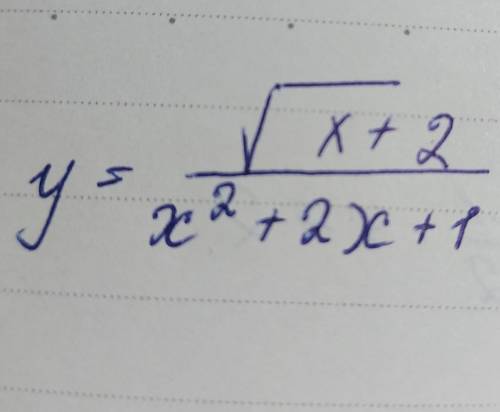 y = √(x + 2) / (x² + 2x + 1)